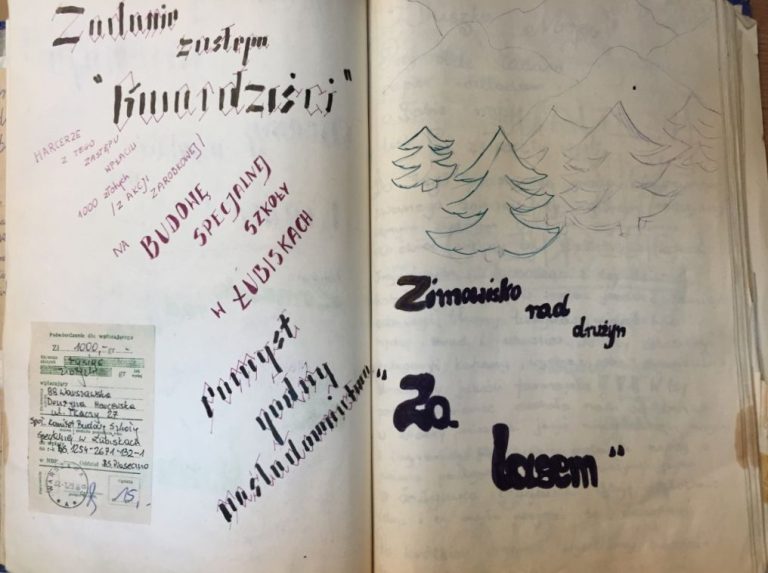 Zadanie
zastępu
"Kwardziści"
HARCERZE
Z TEGO
ZASTĘPU
WPŁACILI
1000 złotych
/Z AKCJI
ZAROBKOWEJ/
NA BUDOWĘ
SPECJALNEJ
SZKOŁY
W ŁUBISKACH
pomysł
godny
naśladownictwa
Potwierdzenie dla wpłacającego
Zł 1000,- gr -
Słownie
złotych
Tysiąc
złotych gr
wpłacający
88 Warszawska
Drużyna Harcerska
ul. Tkaczy 27
Społ. Komitet Budowy Szkoły
Specjalnej w Łubiskach
na r-k 1254-2671-132-1
w NBP Oddział P.S. Piaseczno
Opłata
15,-
Zimowisko
nad
drużyn
"Za
lasem"